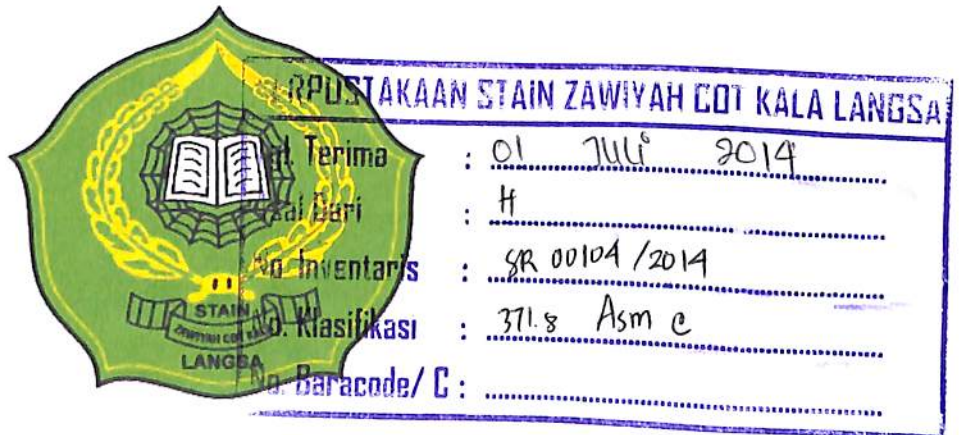 PERPUSTAKAAN STAIN ZAWIYAH COT KALA LANGSA
Tgl. Terima : 01 JULI 2014
Asal Dari : H
No. Inventaris : SR 00104 / 2014
No. Klasifikasi : 371.8 Asm e
No. Baracode/ C :
STAIN
ZAWIYAH COT KALA
LANGSA